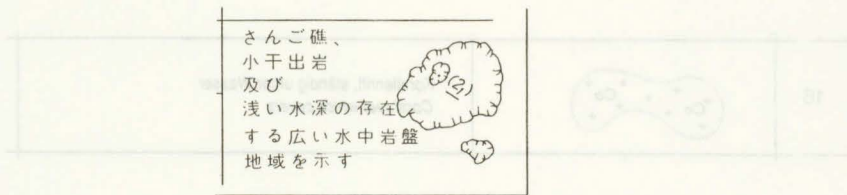 さんご礁、
小干出岩
及び
浅い水深の存在
する広い水中岩盤
地域を示す
(2)
16